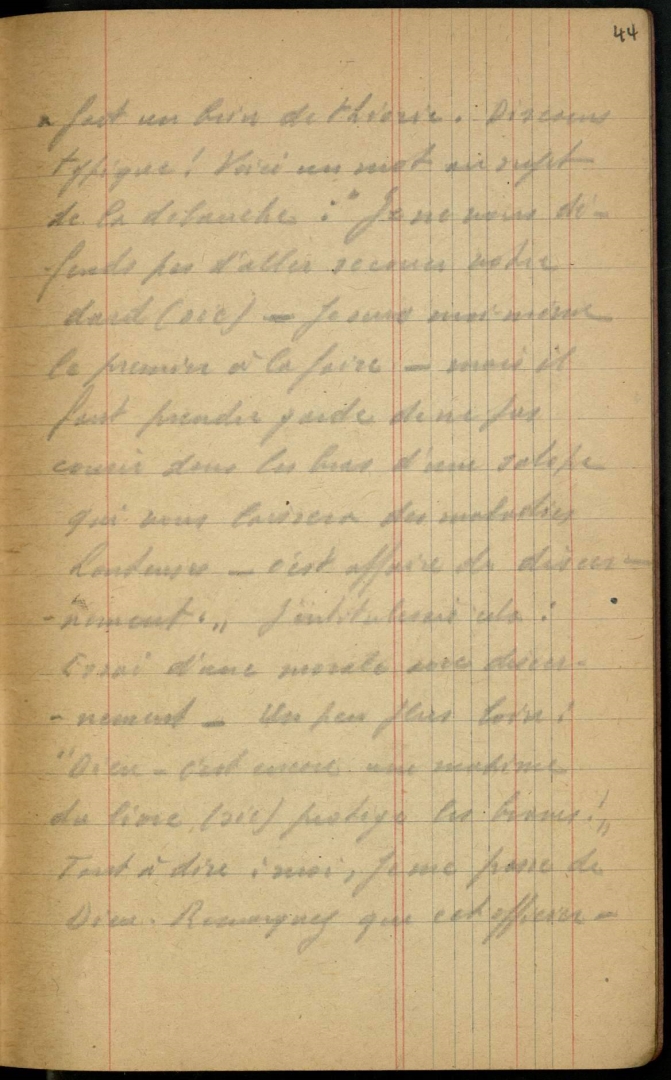 44
fait un brin de théorie. Discours
typique! Voici un mot au sujet
de la débauche : "Je ne vous dé-
fends pas d'aller secouer votre
dard (sic) — Je suis moi-même
le premier à le faire — mais il
faut prendre garde de ne pas
courir dans les bras d'une salope
qui vous laissera des maladies
honteuses — c'est affaire de discer-
-nement." J'intitulerais cela :
Essai d'une morale avec discer-
-nement — Un peu plus loin :
"Dieu - c'est encore une maxime
du livre (sic) protège les braves!"
Tout à dire : moi, je me passe de
Dieu. Remarquez que cet officier -